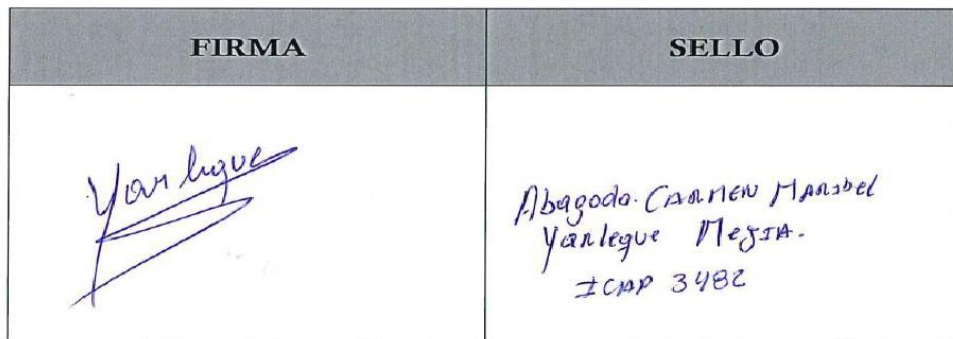 FIRMA
SELLO
Yarleque
Abagoda. CARMEN MARIBEL
Yarleque MEJIA.
ICAP 3482